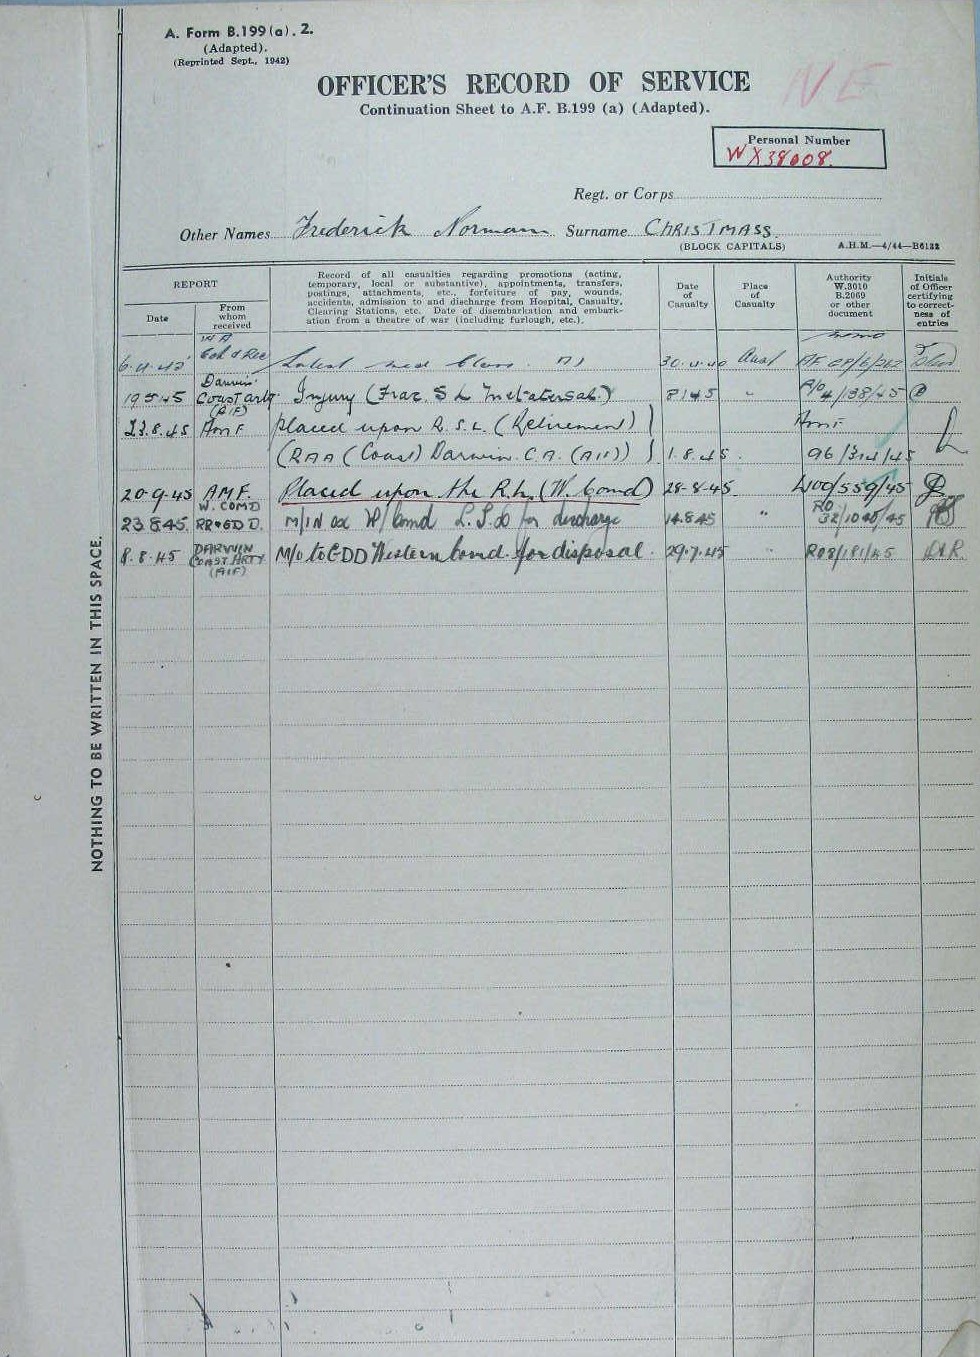 A. Form B.199(a). 2.
(Adapted).
(Reprinted Sept., 1942)
OFFICER'S RECORD OF SERVICE
NE
Continuation Sheet to A.F. B.199 (a) (Adapted).
Personal Number
WX38008.
Regt. or Corps
Other Names Frederick Norman Surname CHRISTMASS.
(BLOCK CAPITALS) A.H.M.—4/44—B6132
REPORT
Date
From
whom
received
Record of all casualties regarding promotions (acting,
temporary, local or substantive), appointments, transfers,
postings, attachments, etc., forfeiture of pay, wounds,
accidents, admission to and discharge from Hospital, Casualty,
Clearing Stations, etc. Date of disembarkation and embark-
ation from a theatre of war (including furlough, etc.).
Date
of
Casualty
Place
of
Casualty
Authority
W.3010
B.2069
or other
document
Initials
of Officer
certifying
to correct-
ness of
entries
med Class. Aust
Darwin
19 5 45 Coast arty Injury (Frac. 5 L 8 1 45 " 4/38/45
(AIF)
23.8.45 placed upon R.S.L. (Retirement)
(RAA (Coast) Darwin C.A. (AIF)) 1.8.45. 96/314/45
20-9-45 A.M.F. Placed upon the R.L. (W. Comd) 28-8-45 W00/559/45
W. COMD RO
23 8 45. RR & GD D. Comd L.T.D for discharge 14.8.45 " 32/1040/45
8.8.45 DARWIN M/o to GDD Western Comd for disposal. 29.7.45 " RO8/181/45
COAST ARTY
(AIF)
NOTHING TO BE WRITTEN IN THIS SPACE.